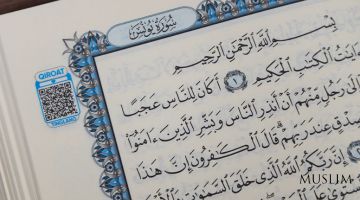 سُورَةُ يُونُسَ
بِسْمِ اللَّهِ الرَّحْمَٰنِ الرَّحِيمِ
QIROAT
ءَايَٰتُ الْكِتَٰبِ الْحَكِيمِ ١ أَكَانَ لِلنَّاسِ عَجَبًا
إِلَىٰ رَجُلٍ مِّنْهُمْ أَنْ أَنذِرِ النَّاسَ وَبَشِّرِ الَّذِينَ ءَامَنُوا
صِدْقٍ عِندَ رَبِّهِمْ قَالَ الْكَٰفِرُونَ إِنَّ هَٰذَا
إِنَّ رَبَّكُمُ اللَّهُ الَّذِي خَلَقَ السَّمَٰوَٰتِ
MUSLIM